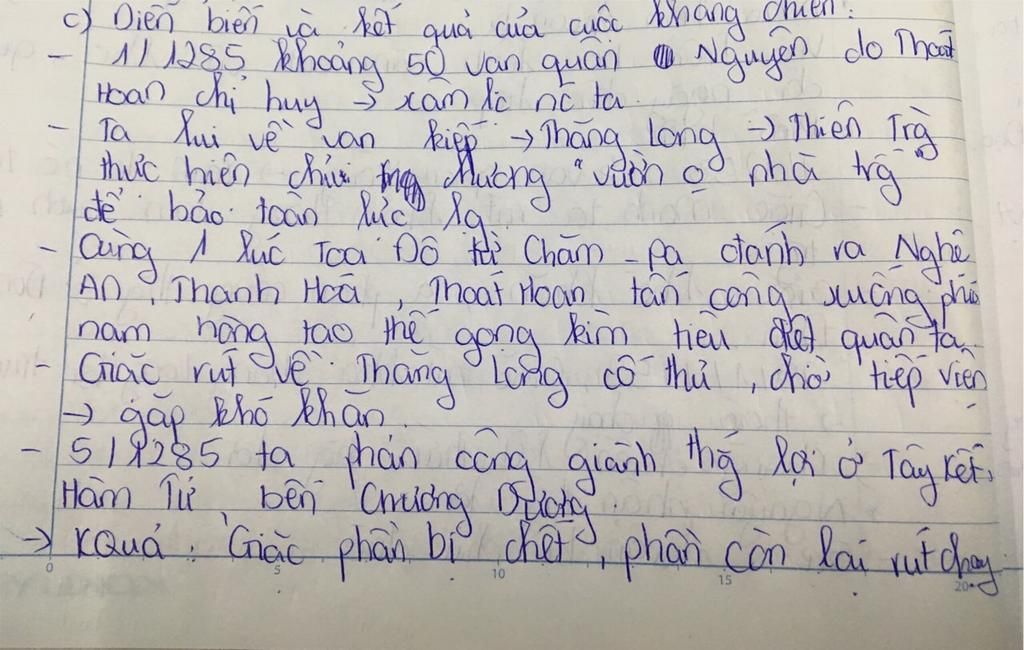 c) Diễn biến và kết quả của cuộc kháng chiến:
- 1/1285 khoảng 50 vạn quân Nguyên do Thoát
Hoan chỉ huy → xâm lc nc ta.
- Ta lui về vạn kiếp → Thăng Long → Thiên Trg
thực hiện chủ trương "vườn o nhà trg"
để bảo toàn lực lg
- Cùng 1 lúc Toa Đô từ Chăm-pa đánh ra Nghệ
An, Thanh Hoá, Thoát Hoan tấn công xuống phía
nam hòng tạo thế gọng kìm tiêu diệt quân ta.
- Giặc rút về Thăng Long cố thủ, chờ tiếp viện
→ gặp khó khăn.
- 5/1285 ta phản công giành thg lợi ở Tây Kết,
Hàm Tử, bến Chương Dương.
→ KQuả: Giặc phần bị chết, phần còn lại rút chạy
0 5 10 15 20